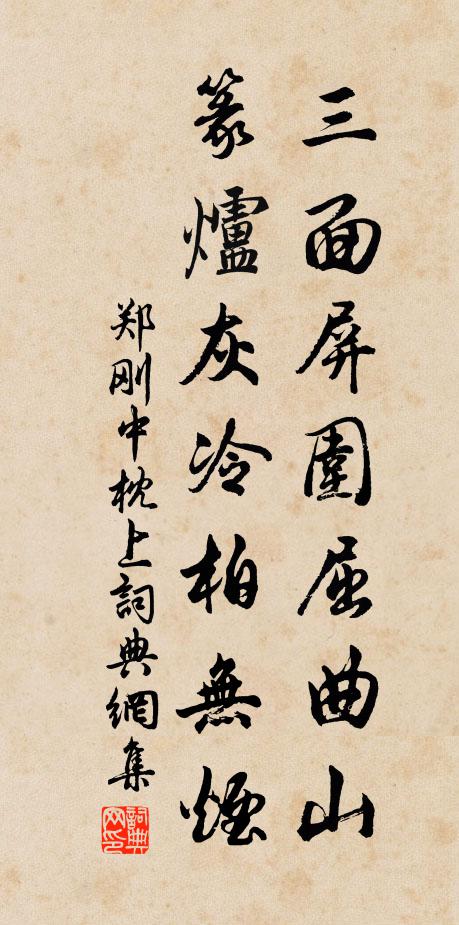 三面屏圍屈曲山
篆爐灰冷柏無煙
郑刚中枕上詞典網集
詞典網印